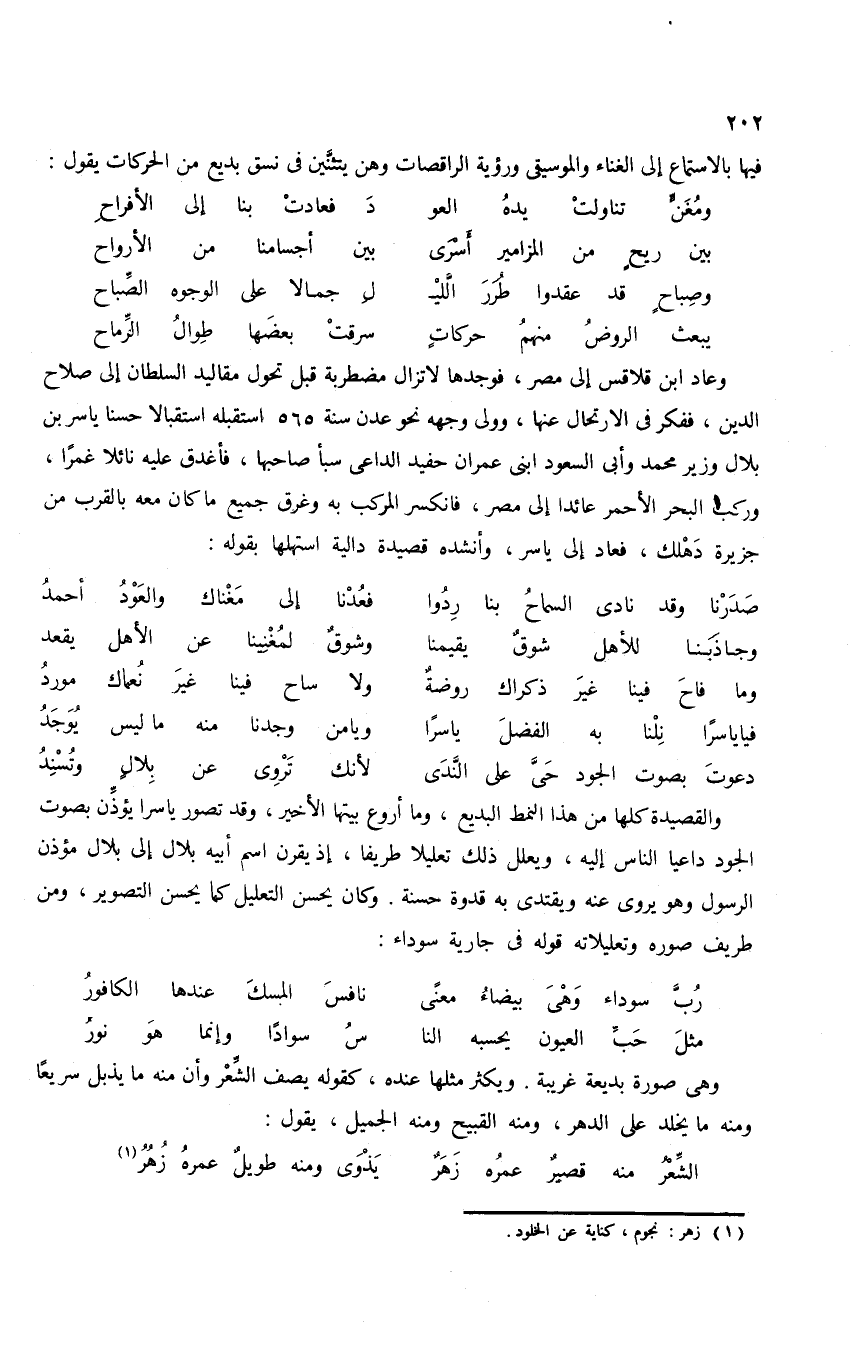 ٢٠٢
فيها بالاستماع إلى الغناء والموسيقى ورؤية الراقصات وهن يتثنَّين فى نسق بديع من الحركات يقول :
ومُغَنٍّ تناولتْ يدهُ العو دَ فعادتْ بنا إلى الأفراحِ
بين ريحٍ من المزامير أَسْرَى بين أجسامنا من الأرواح
وصِباحٍ قد عقدوا طُرَرَ الَّليْـ ـلِ جمـالا على الوجوه الصِّباح
يبعث الروضُ منهمُ حركاتٍ سرقتْ بعضَها طِوالُ الرِّماح
وعاد ابن قلاقس إلى مصر ، فوجدها لاتزال مضطربة قبل تحول مقاليد السلطان إلى صلاح
الدين ، ففكر فى الارتحال عنها ، وولى وجهه نحو عدن سنة ٥٦٥ استقبله استقبالا حسنا ياسر بن
بلال وزير محمد وأبى السعود ابنى عمران حفيد الداعى سبأ صاحبها ، فأغدق عليه نائلا غمرًا ،
وركب البحر الأحمر عائدا إلى مصر ، فانكسر المركب به وغرق جميع ماكان معه بالقرب من
جزيرة دَهْلك ، فعاد إلى ياسر ، وأنشده قصيدة دالية استهلها بقوله :
صَدَرْنا وقد نادى السماحُ بنا رِدُوا فعُدْنا إلى مَغْناك والعَوْدُ أحمدُ
وجـاذَبَنـا للأهل شوقٌ يقيمنا وشوقٌ لمُغْنِينا عن الأهل يقعد
وما فاحَ فينا غيرَ ذكراك روضةٌ ولا ساح فينا غيرَ نُعماك موردُ
فياياسرًا نِلْنا به الفضلَ ياسرًا ويامن وجدنا منه ماليس يُوَجَدُ
دعوتَ بصوت الجود حَىَّ على النَّدَى لأنك تَرْوِى عن بِلالٍ وتُسْنِدُ
والقصيدة كلها من هذا النمط البديع ، وما أروع بيتها الأخير ، وقد تصور ياسرا يؤذِّن بصوت
الجود داعيا الناس إليه ، ويعلل ذلك تعليلا طريفا ، إذ يقرن اسم أبيه بلال إلى بلال مؤذن
الرسول وهو يروى عنه ويقتدى به قدوة حسنة . وكان يحسن التعليل كما يحسن التصوير ، ومن
طريف صوره وتعليلاته قوله فى جارية سوداء :
رُبَّ سوداء وَهْىَ بيضاءُ معنًى نافسَ المسكَ عندها الكافورُ
مثلَ حَبِّ العيون يحسبه النا سُ سوادًا وإنما هوَ نورُ
وهى صورة بديعة غريبة . ويكثر مثلها عنده ، كقوله يصف الشِّعْر وأن منه ما يذبل سريعًا
ومنه ما يخلد على الدهر ، ومنه القبيح ومنه الجميل ، يقول :
الشِّعْرُ منه قصيرٌ عمرُه زَهَرٌ يَذْوَى ومنه طويلٌ عمرهُ زُهُرُ(١)
(١) زهر : نجوم ، كناية عن الخلود .